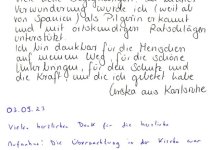 Verwunderung wurde ich (weit ab
von Spanien) als Pilgerin erkannt
und mit ortskundigen Ratschlägen
unterstützt.
Ich bin dankbar für die Menschen
auf meinem Weg, für die schöne
Unterbringung, für den Schutz und
die Kraft um die ich gebetet habe
aus Karlsruhe
02.09.23
Vielen herzlichen Dank für die herzliche
Aufnahme. Die Übernachtung in der Kirche war